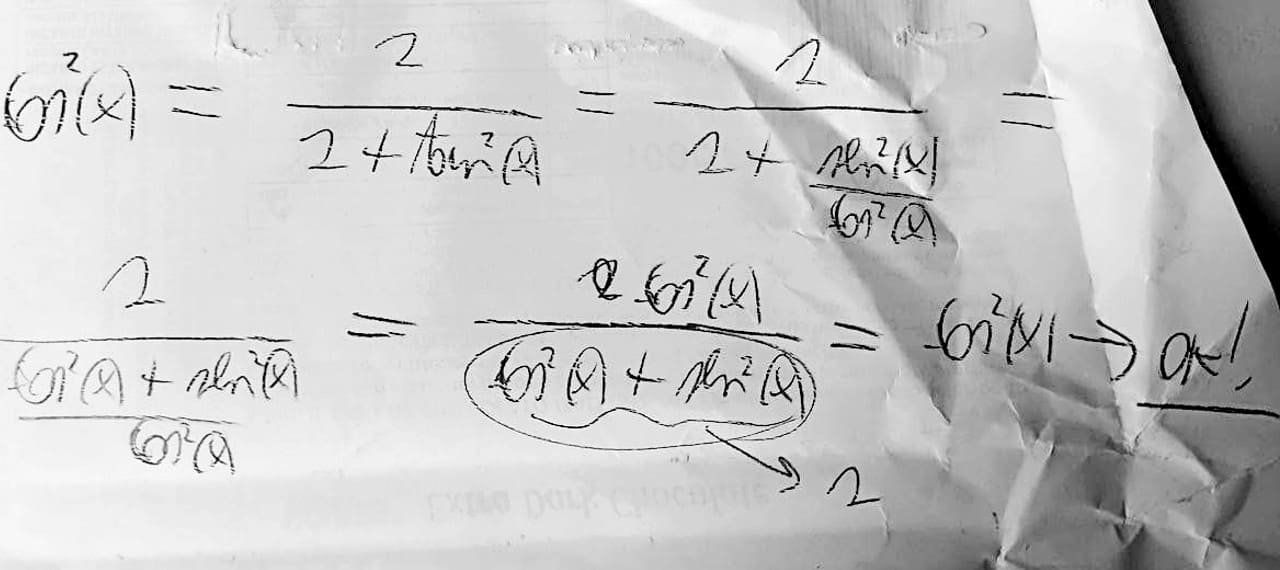 cos²(x) = 1 / (1 + tan²(x)) = 1 / (1 + sen²(x) / cos²(x)) =
1 / ((cos²(x) + sen²(x)) / cos²(x)) = cos²(x) / (cos²(x) + sen²(x)) = cos²(x) → OK!
→ 1
Extra Dark Chocolate